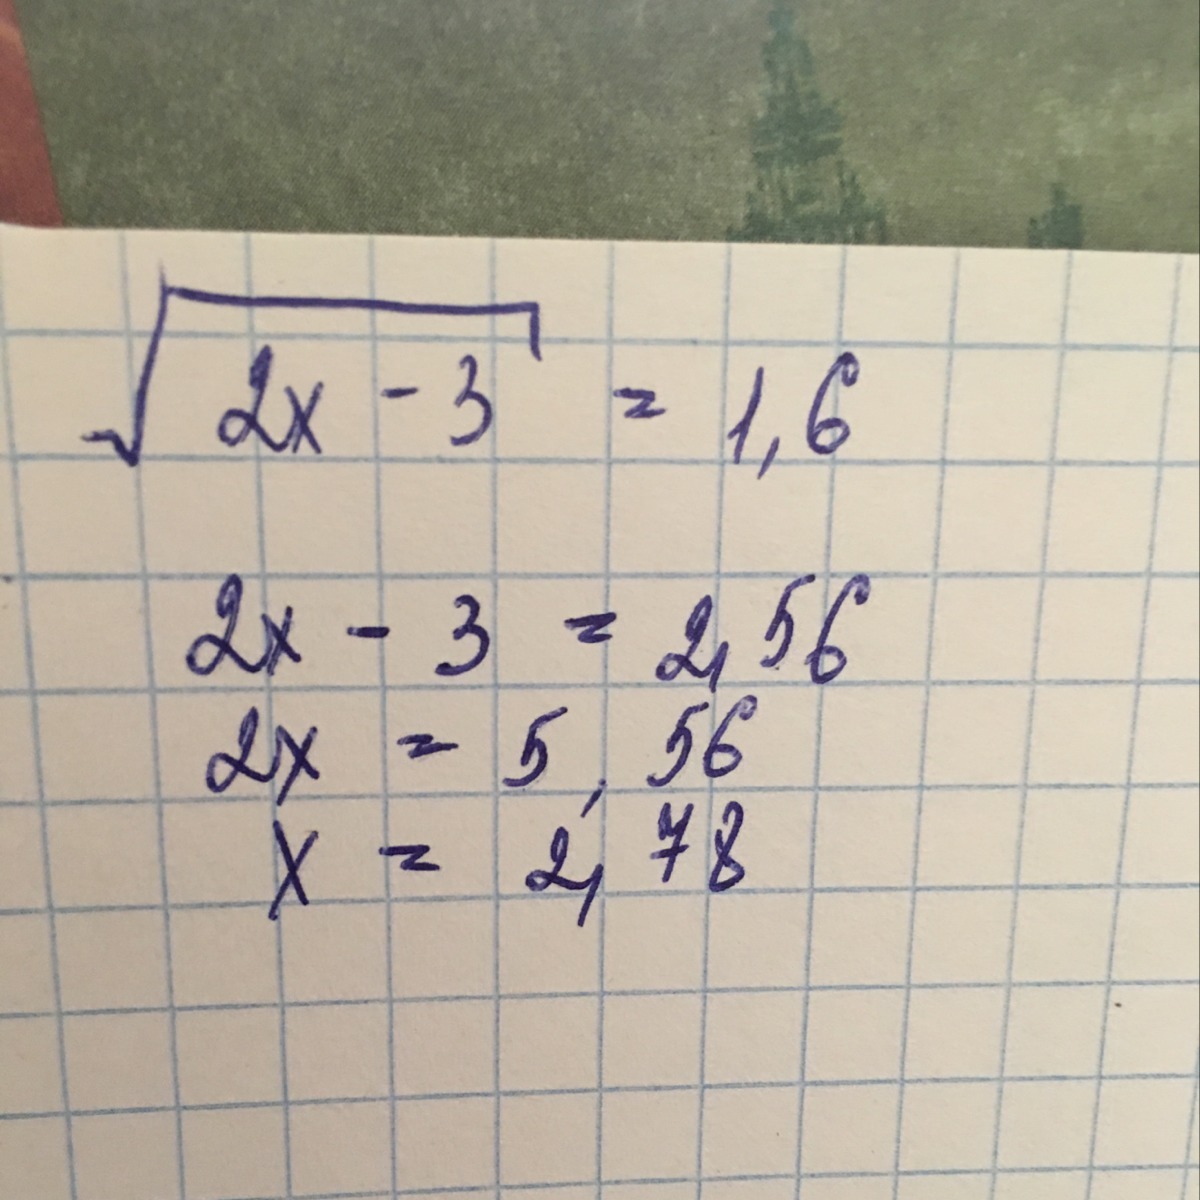 √2x - 3 = 1,6
2x - 3 = 2,56
2x = 5,56
x = 2,78